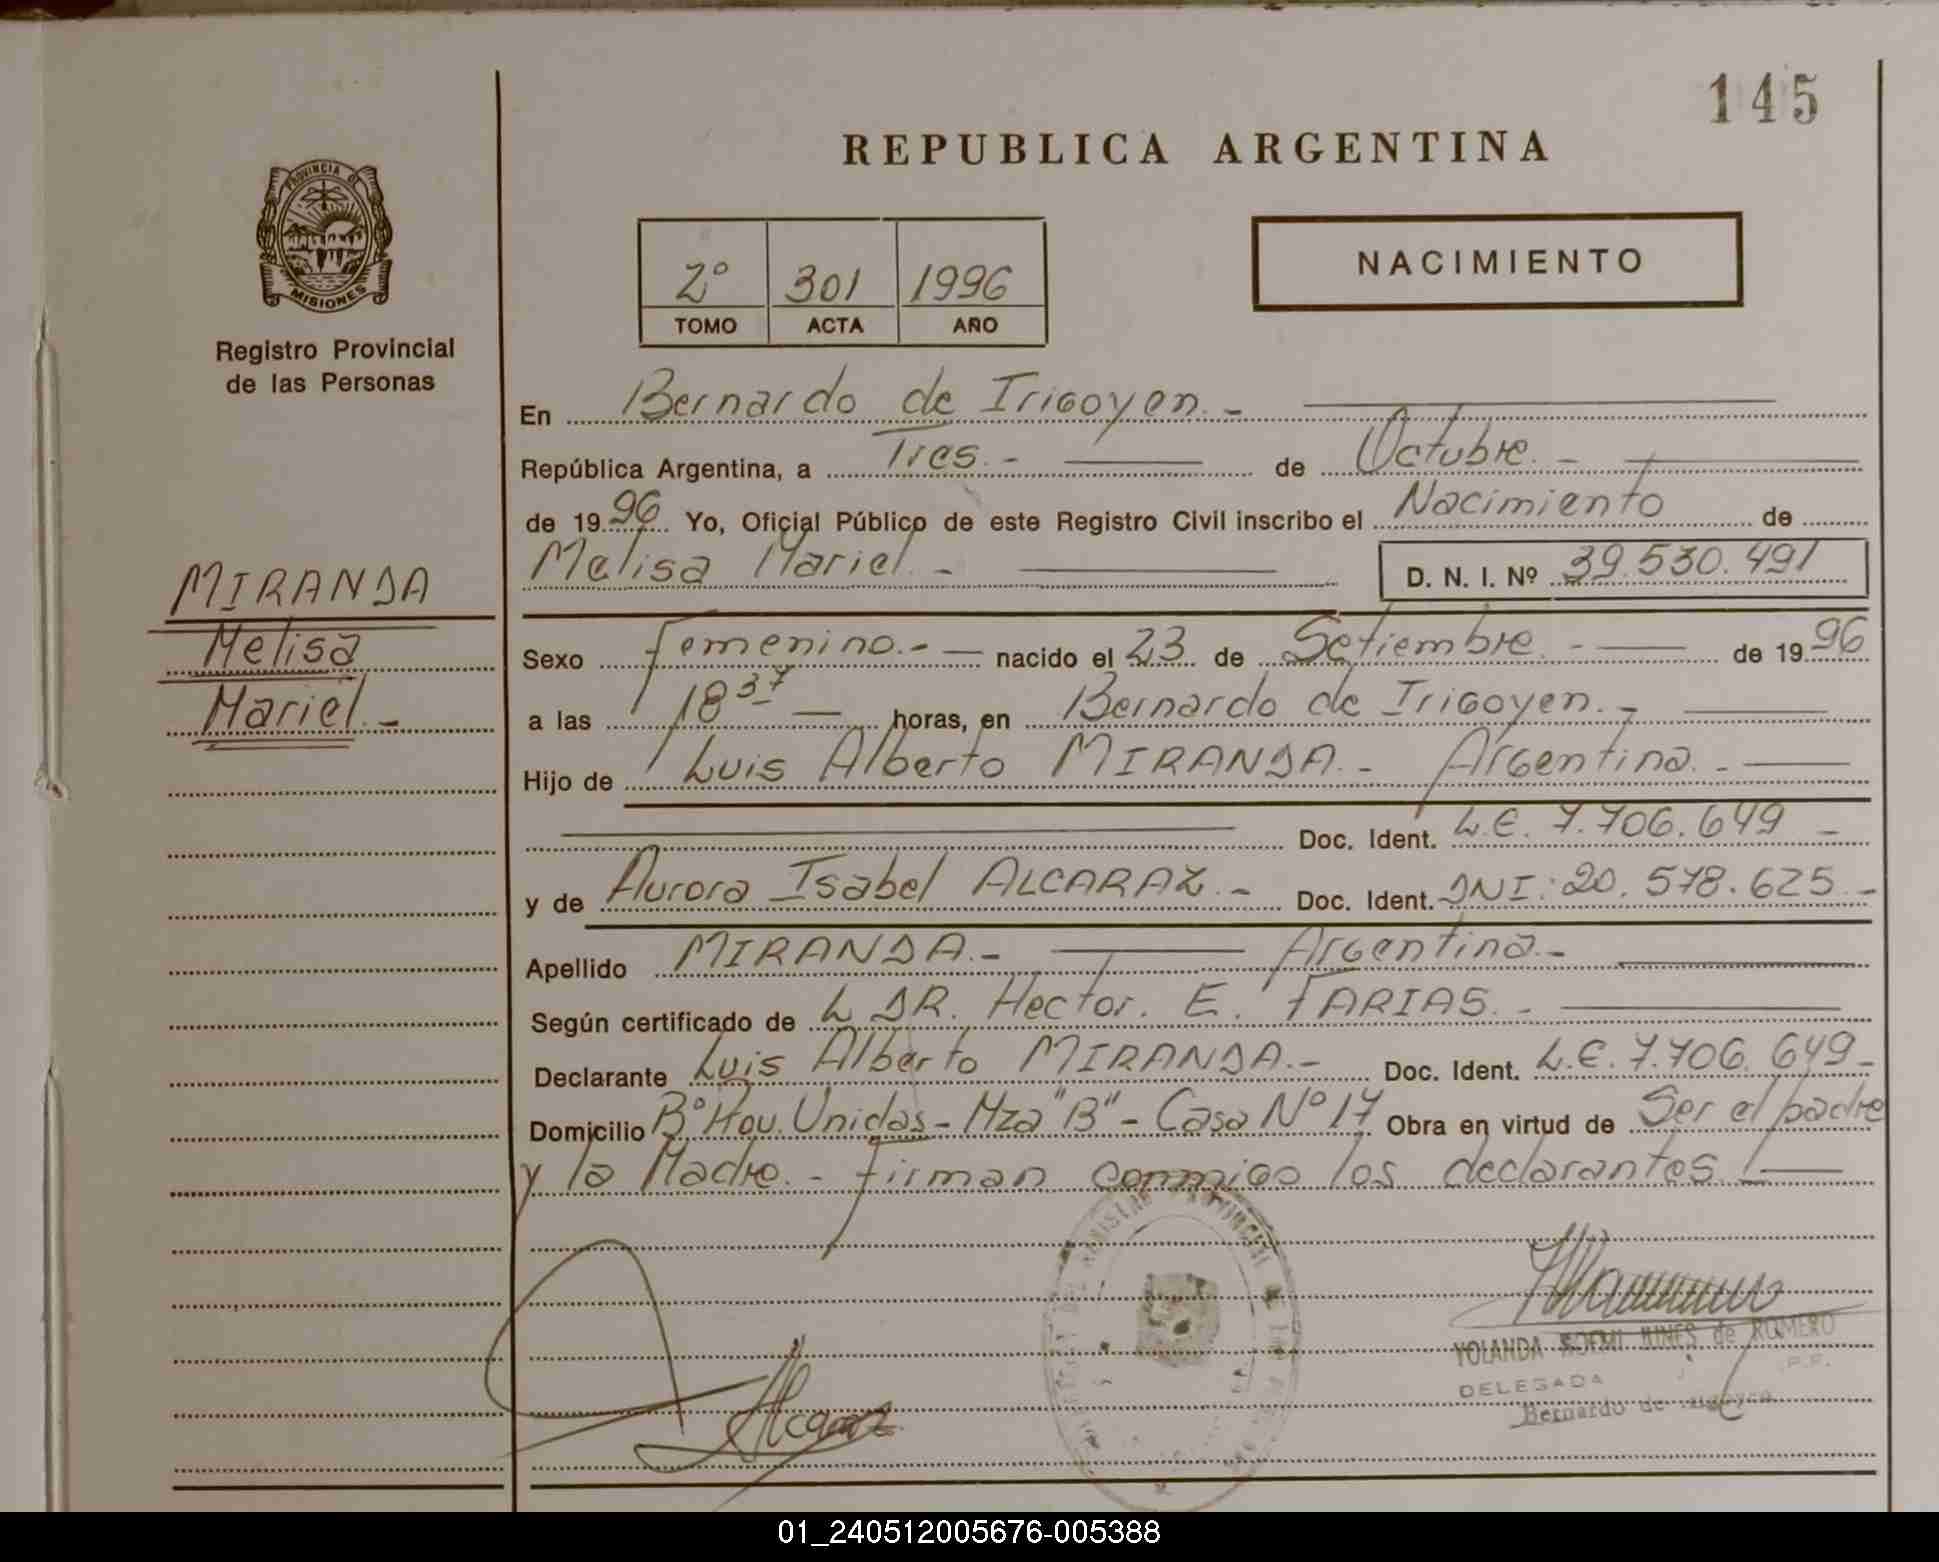 145
REPUBLICA ARGENTINA
PROVINCIA DE
MISIONES
Registro Provincial
de las Personas
2º 301 1996
TOMO ACTA AÑO
NACIMIENTO
En Bernardo de Irigoyen.-
República Argentina, a Tres.- de Octubre.-
de 1996 Yo, Oficial Público de este Registro Civil inscribo el Nacimiento de
Melisa Mariel.- D. N. I. Nº 39.530.491
MIRANDA
Melisa
Mariel.-
Sexo femenino.- nacido el 23 de Setiembre.- de 1996
a las 18 37 horas, en Bernardo de Irigoyen.-
Hijo de Luis Alberto MIRANDA.- Argentina.-
Doc. Ident. L.E. 7.706.649-
y de Aurora Isabel ALCARAZ.- Doc. Ident. DNI: 20.578.625.-
Apellido MIRANDA.- Argentina.-
Según certificado de L DR. Hector. E. FARIAS.-
Declarante Luis Alberto MIRANDA.- Doc. Ident. L.E. 7.706.649-
Domicilio Bº Unidas- Mza "B"- Casa Nº 17 Obra en virtud de Ser el padre
y la Madre.- firman conmigo los declarantes.-
Alcaraz
YOLANDA NOEMI NUNES de ROMERO
DELEGADA
Bernardo de Irigoyen
01_240512005676-005388